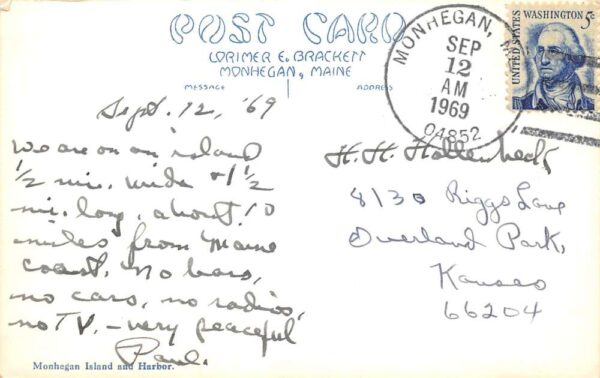 POST CARD
LORIMER E. BRACKETT
MONHEGAN, MAINE
MESSAGE
ADDRESS
MONHEGAN, M
SEP
12
AM
1969
04852
UNITED STATES
WASHINGTON 5c
Sept. 12, '69
We are on an island
1/2 mi. wide + 1 1/2
mi. long, about 10
miles from Maine
coast. No bars,
no cars, no radios,
no TV. - very peaceful
Paul.
H. H. Hollenbeck
8130 Riggs Lane
Overland Park,
Kansas
66204
Monhegan Island and Harbor.